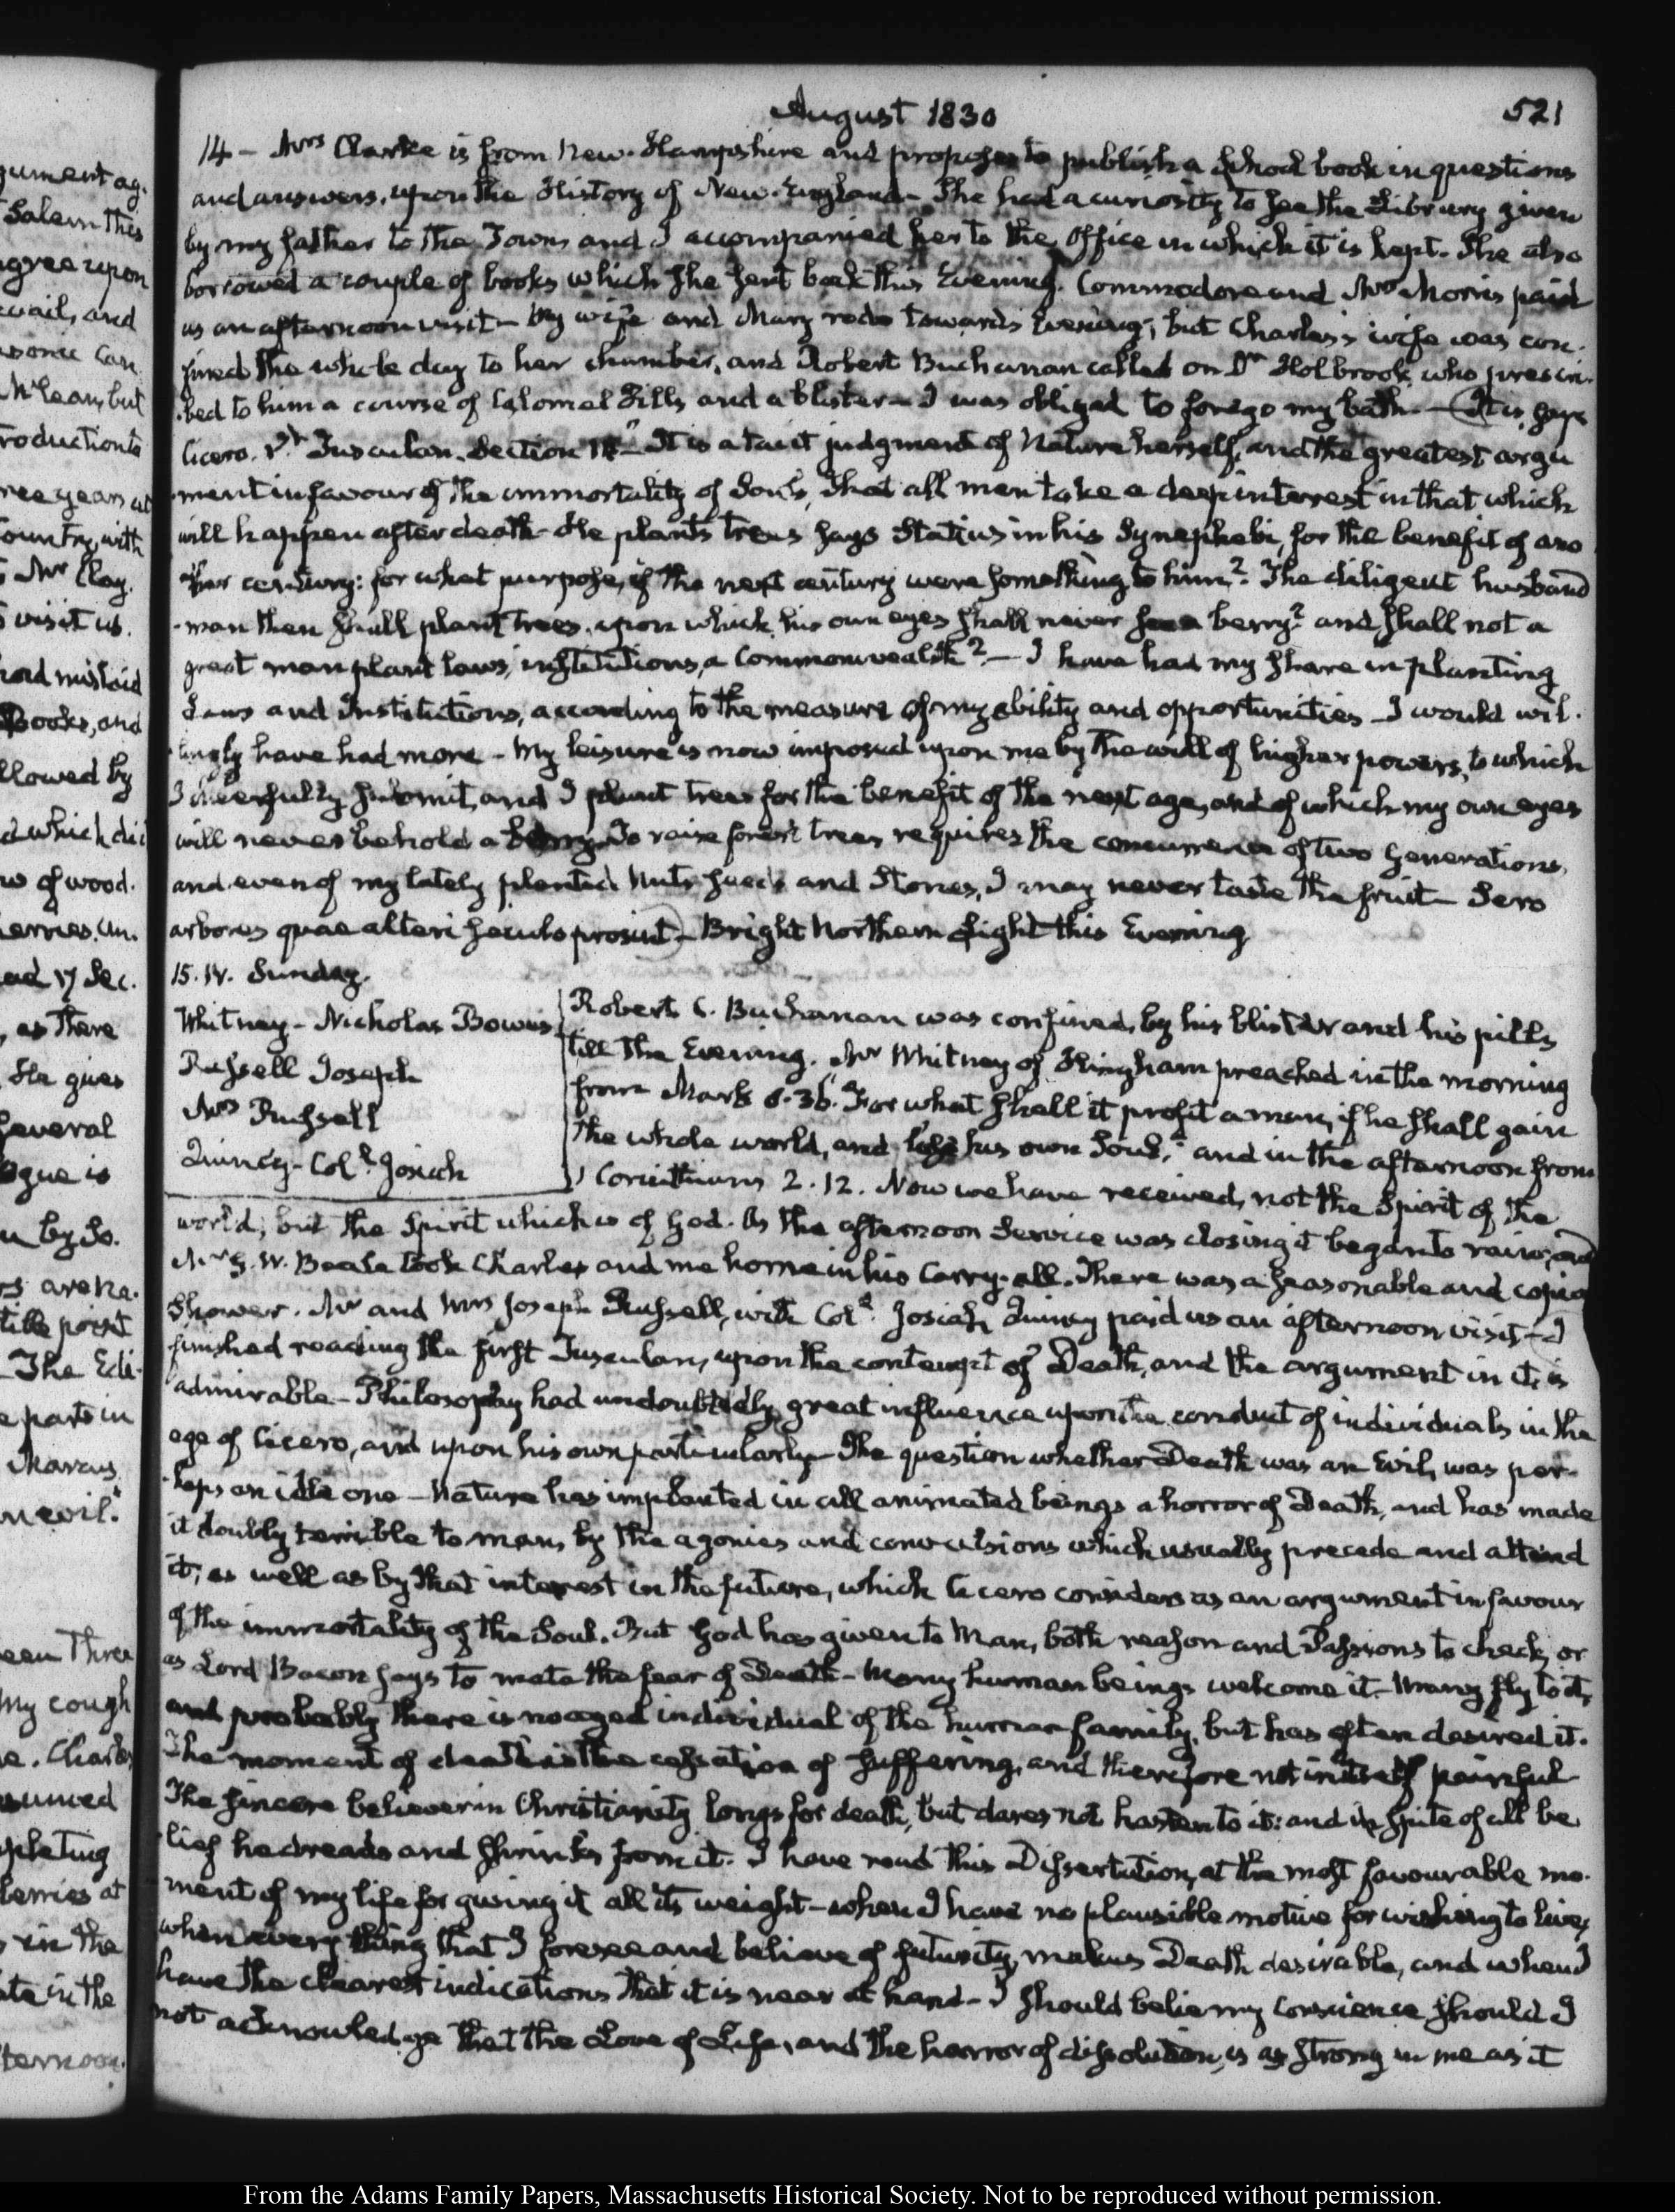 August 1830
521
14 - Mrs Clarke is from New-Hampshire and proposes to publish a School book in questions
and answers, upon the History of New-England - She had a curiosity to see the Library given
by my father to the Town, and I accompanied her to the Office in which it is kept. She also
borrowed a couple of books which she sent back this Evening. Commodore and Mrs Morris paid
us an afternoon visit - My wife and Mary rode towards Evening; but Charles's wife was con-
fined the whole day to her chamber, and Robert Buchanan called on Dr Holbrook, who prescri-
bed to him a course of Calomel Pills and a blister - I was obliged to forego my bath. - (It is, says
Cicero. Tusculan. Section 14 "It is a tacit judgment of Nature herself, and the greatest argu
ment in favour of the immortality of Souls, that all men take a deep interest in that which
will happen after death - He plants trees says Statius in his Synephebi, for the benefit of ano
ther century: for what purpose, if the next century were something to him? The diligent husband
-man then shall plant trees, upon which his own eyes shall never see a berry? and shall not a
great man plant laws, institutions, a Commonwealth? - I have had my share in planting
Laws and Institutions, according to the measure of my ability and opportunities - I would wil-
lingly have had more - My leisure is now imposed upon me by the will of higher powers, to which
I cheerfully submit, and I plant trees for the benefit of the next age, and of which my own eyes
will never behold a berry. To raise forest trees requires the concurrence of two Generations,
and even of my lately planted Nuts seeds and Stones, I may never taste the fruit - Sero
arbores quae alteri seculo prosint) - Bright Northern Light this Evening
15. IV. Sunday.
Whitney - Nicholas Bowes
Russell Joseph
Mrs Russell
Quincy - Coll. Josiah
Robert C. Buchanan was confined, by his blister and his pills
till the Evening. Mr Whitney of Hingham preached in the morning
from Mark 8.36. For what shall it profit a man, if he shall gain
the whole world, and lose his own Soul? and in the afternoon from
1 Corinthians 2.12. Now we have received, not the Spirit of the
world; but the Spirit which is of God. As the afternoon Service was closing it began to rain, and
Mr G. W. Beale took Charles and me home in his Carry-all. There was a seasonable and copious
Shower. Mr and Mrs Joseph Russell, with Coll. Josiah Quincy paid us an afternoon visit - I
finished reading the first Tusculan, upon the contempt of Death, and the argument in it, is
admirable - Philosophy had undoubtedly great influence upon the conduct of individuals in the
age of Cicero, and upon his own particularly - The question whether Death was an Evil, was per-
haps an idle one - Nature has implanted in all animated beings a horror of Death, and has made
it doubly terrible to man, by the agonies and convulsions which usually precede and attend
it, as well as by that interest in the future, which Cicero considers as an argument in favour
of the immortality of the Soul. But God has given to Man, both reason and Passions to check, or
as Lord Bacon says to mate the fear of Death - Many human beings welcome it - Many fly to it,
and probably there is no aged individual of the human family, but has often desired it.
The moment of death is the cessation of suffering, and therefore not in itself painful
The sincere believer in Christianity longs for death, but dares not hasten to it: and in spite of all be
lief he dreads and shrinks from it. I have read this Dissertation, at the most favourable mo-
ment of my life for giving it all its weight - when I have no plausible motive for wishing to live,
when every thing that I foresee and believe of futurity, makes Death desirable, and when I
have the clearest indications that it is near at hand - I should belie my Conscience should I
not acknowledge that the Love of Life, and the horror of dissolution, is as strong in me as it
From the Adams Family Papers, Massachusetts Historical Society. Not to be reproduced without permission.